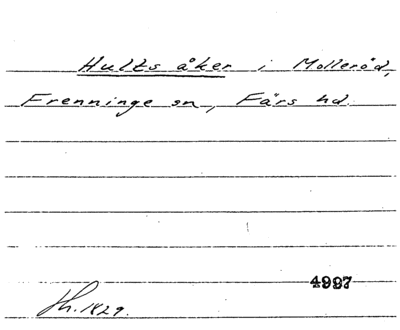 Hults åker i Molleröd,
Frenninge sn, Färs hd.
4997
Th. 1829.